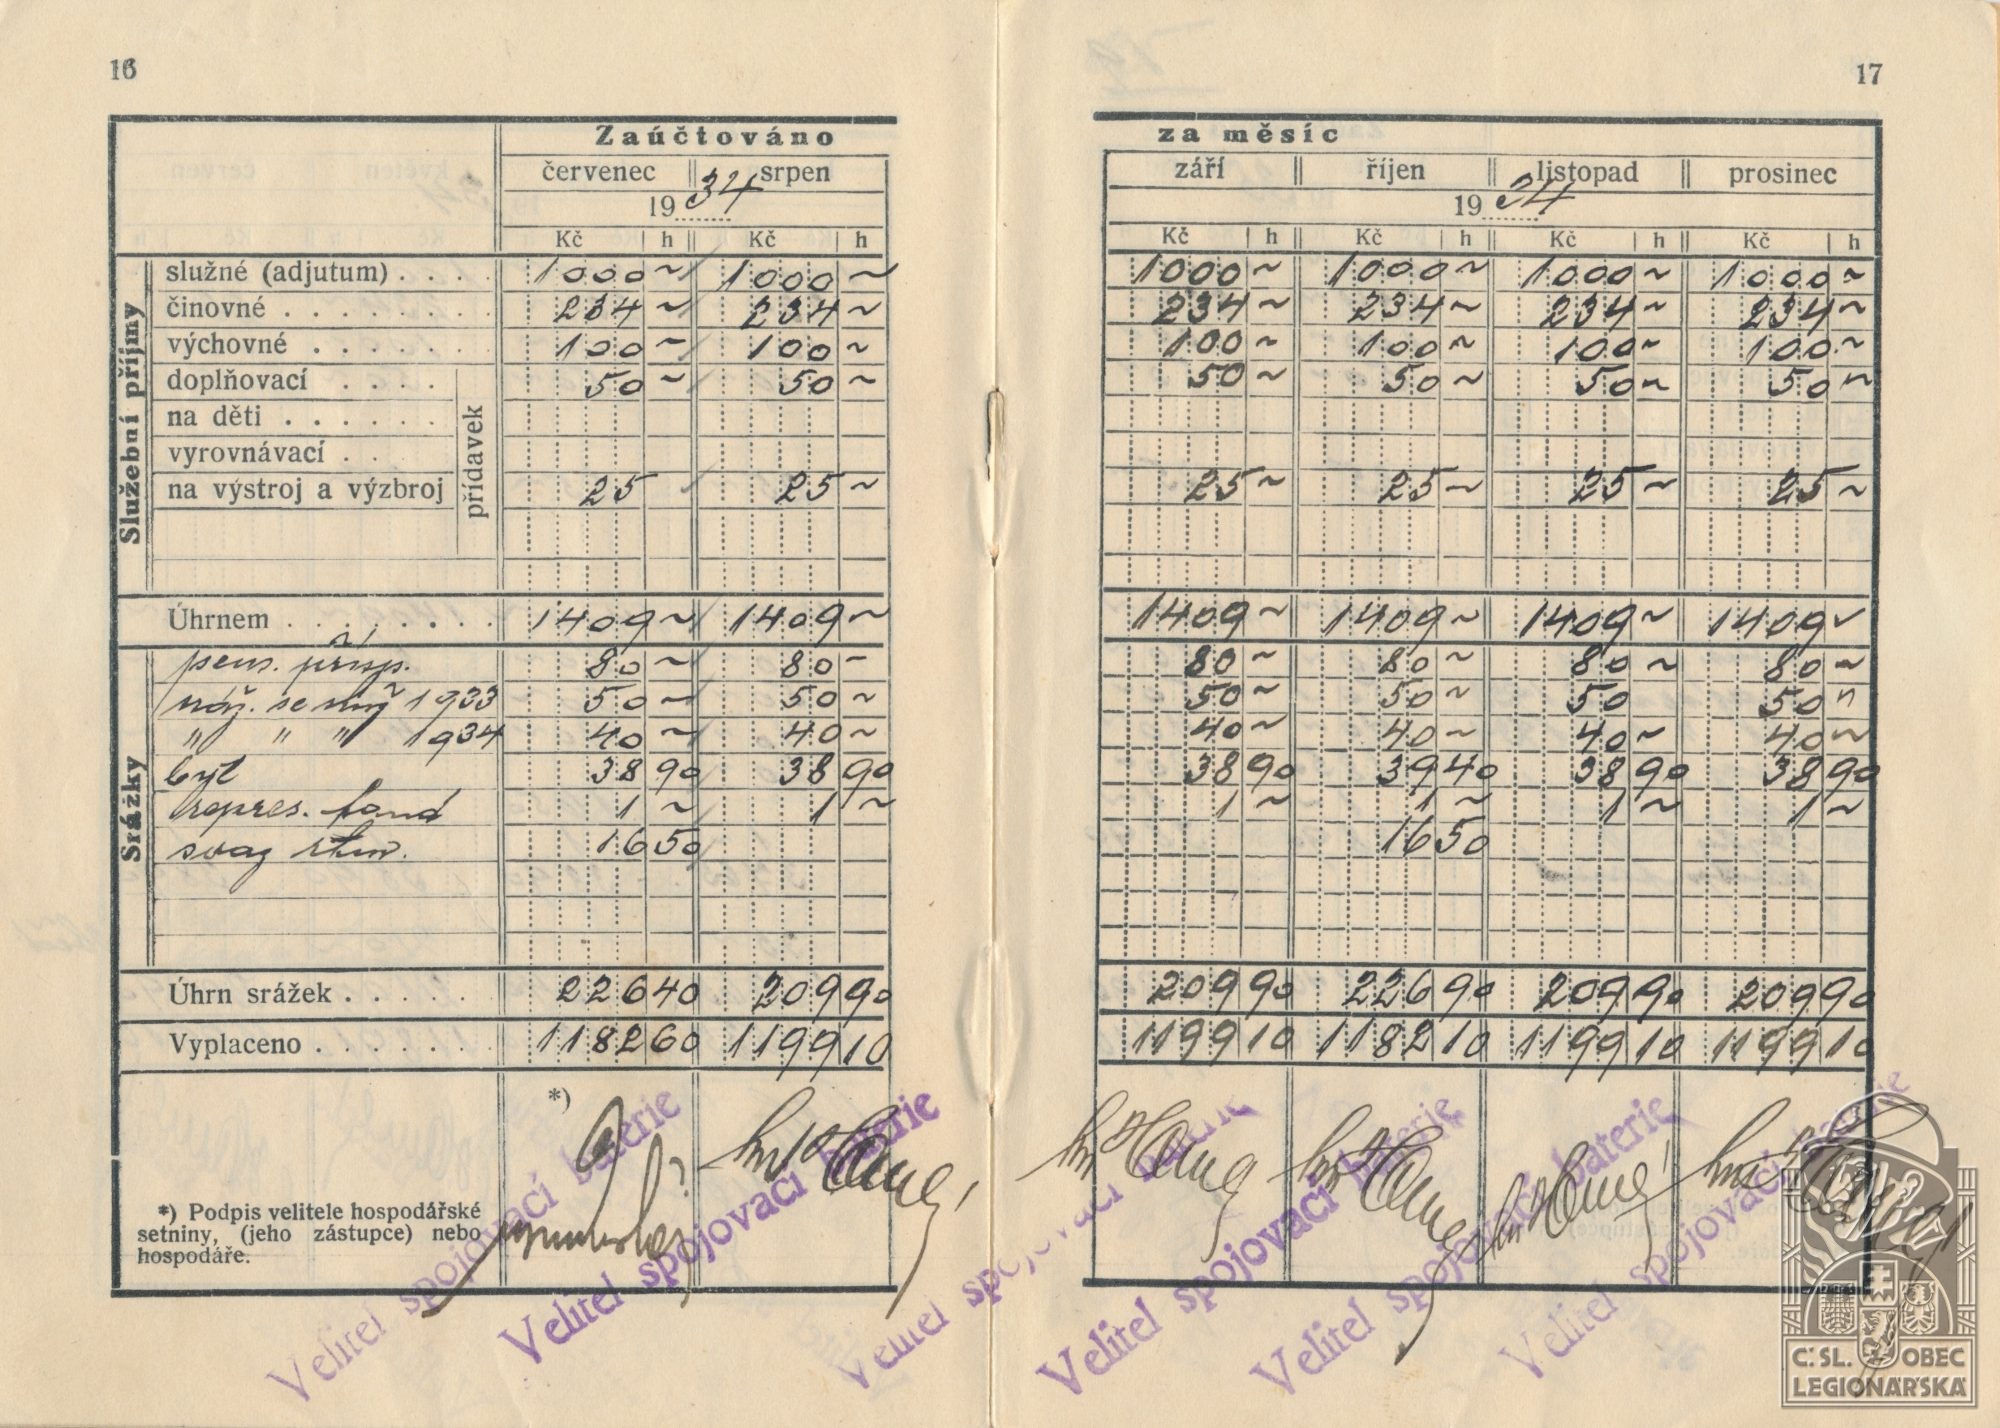 16
17
Zaúčtováno za měsíc
červenec srpen září říjen listopad prosinec
19 34 19 34
Kč h Kč h Kč h Kč h Kč h Kč h
Služební příjmy
služné (adjutum) . . . . 1000 ~ 1000 ~ 1000 ~ 1000 ~ 1000 ~ 1000 ~
činovné . . . . . . . . 234 ~ 234 ~ 234 ~ 234 ~ 234 ~ 234 ~
výchovné . . . . . . . 100 ~ 100 ~ 100 ~ 100 ~ 100 ~ 100 ~
doplňovací . . . . 50 ~ 50 ~ 50 ~ 50 ~ 50 ~ 50 ~
na děti . . . . . .
vyrovnávací . .
na výstroj a výzbroj 25 25 ~ 25 ~ 25 ~ 25 ~ 25 ~
přídavek
Úhrnem . . . . . . . . 1409 ~ 1409 ~ 1409 ~ 1409 ~ 1409 ~ 1409 ~
Srážky
pens. přísp. 80 ~ 80 ~ 80 ~ 80 ~ 80 ~ 80 ~
1933 50 ~ 50 ~ 50 ~ 50 ~ 50 50 ~
" " " 1934 40 ~ 40 ~ 40 ~ 40 ~ 40 ~ 40 ~
byt 38 90 38 90 38 90 39 40 38 90 38 90
repres. fond 1 ~ 1 ~ 1 ~ 1 ~ 1 ~ 1 ~
svaz 16 50 16 50
Úhrn srážek . . . . . . 226 40 209 90 209 90 226 90 209 90 209 90
Vyplaceno . . . . . . . 1182 60 1199 10 1199 10 1182 10 1199 10 1199 10
*)
*) Podpis velitele hospodářské
setniny, (jeho zástupce) nebo
hospodáře.
Velitel spojovací baterie
Velitel spojovací baterie
Velitel spojovací baterie
Velitel spojovací baterie
Velitel spojovací baterie
Velitel spojovací baterie
Č. SL. OBEC
LEGIONÁŘSKÁ